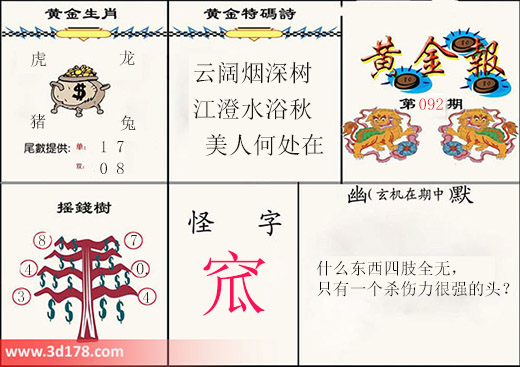 黄金生肖
虎
龙
$
猪
兔
尾數提供:
单: 1 7
双: 0 8
黄金特碼詩
云阔烟深树
江澄水浴秋
美人何处在
黄金報
第092期
摇錢樹
8
7
4
0
3
4
怪 字
窊
幽(玄机在期中)默
什么东西四肢全无，
只有一个杀伤力很强的头?
www.3d178.com